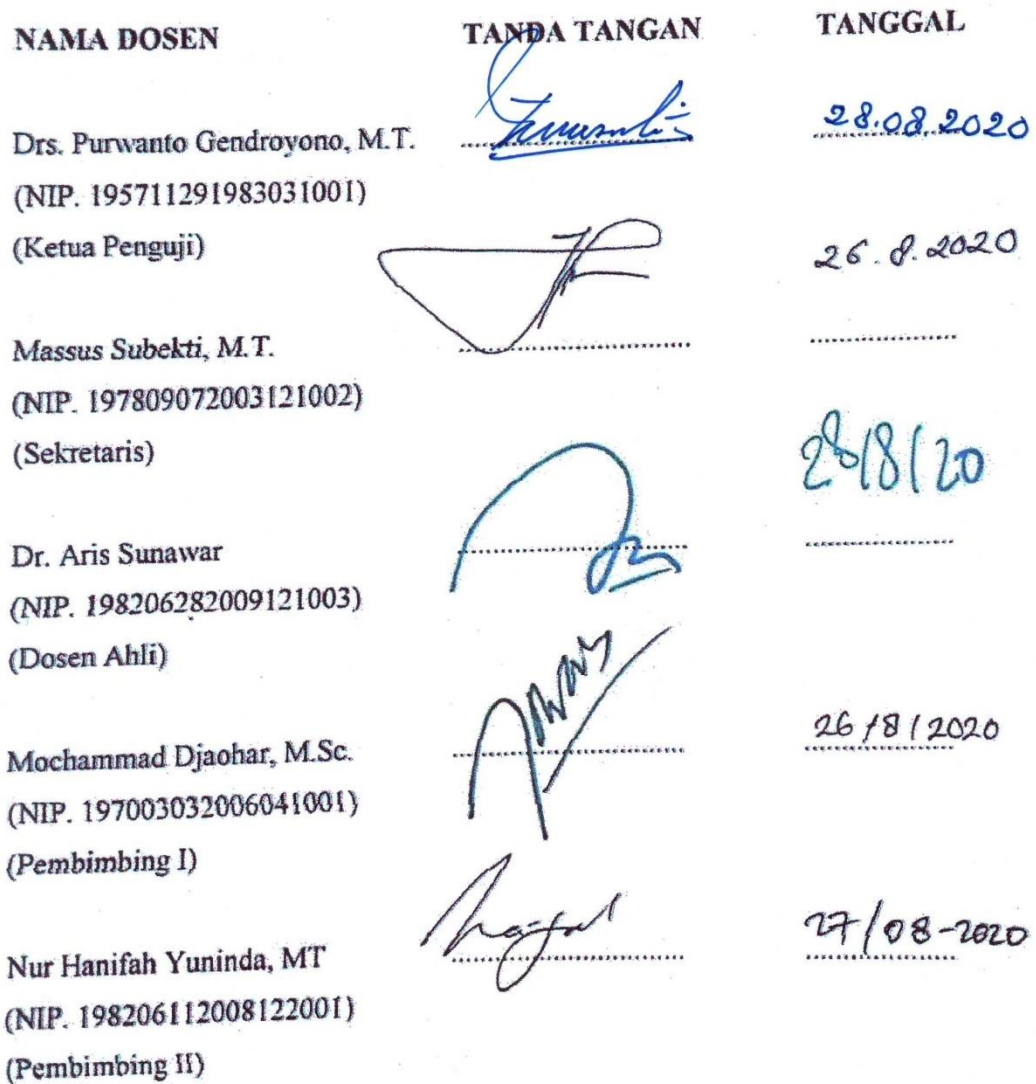 NAMA DOSEN TANDA TANGAN TANGGAL
Drs. Purwanto Gendroyono, M.T. 28.08.2020
(NIP. 195711291983031001)
(Ketua Penguji) 26.8.2020
Massus Subekti, M.T.
(NIP. 197809072003121002)
(Sekretaris) 28/8/20
Dr. Aris Sunawar
(NIP. 198206282009121003)
(Dosen Ahli)
Mochammad Djaohar, M.Sc. 26/8/2020
(NIP. 197003032006041001)
(Pembimbing I)
Nur Hanifah Yuninda, MT 27/08-2020
(NIP. 198206112008122001)
(Pembimbing II)